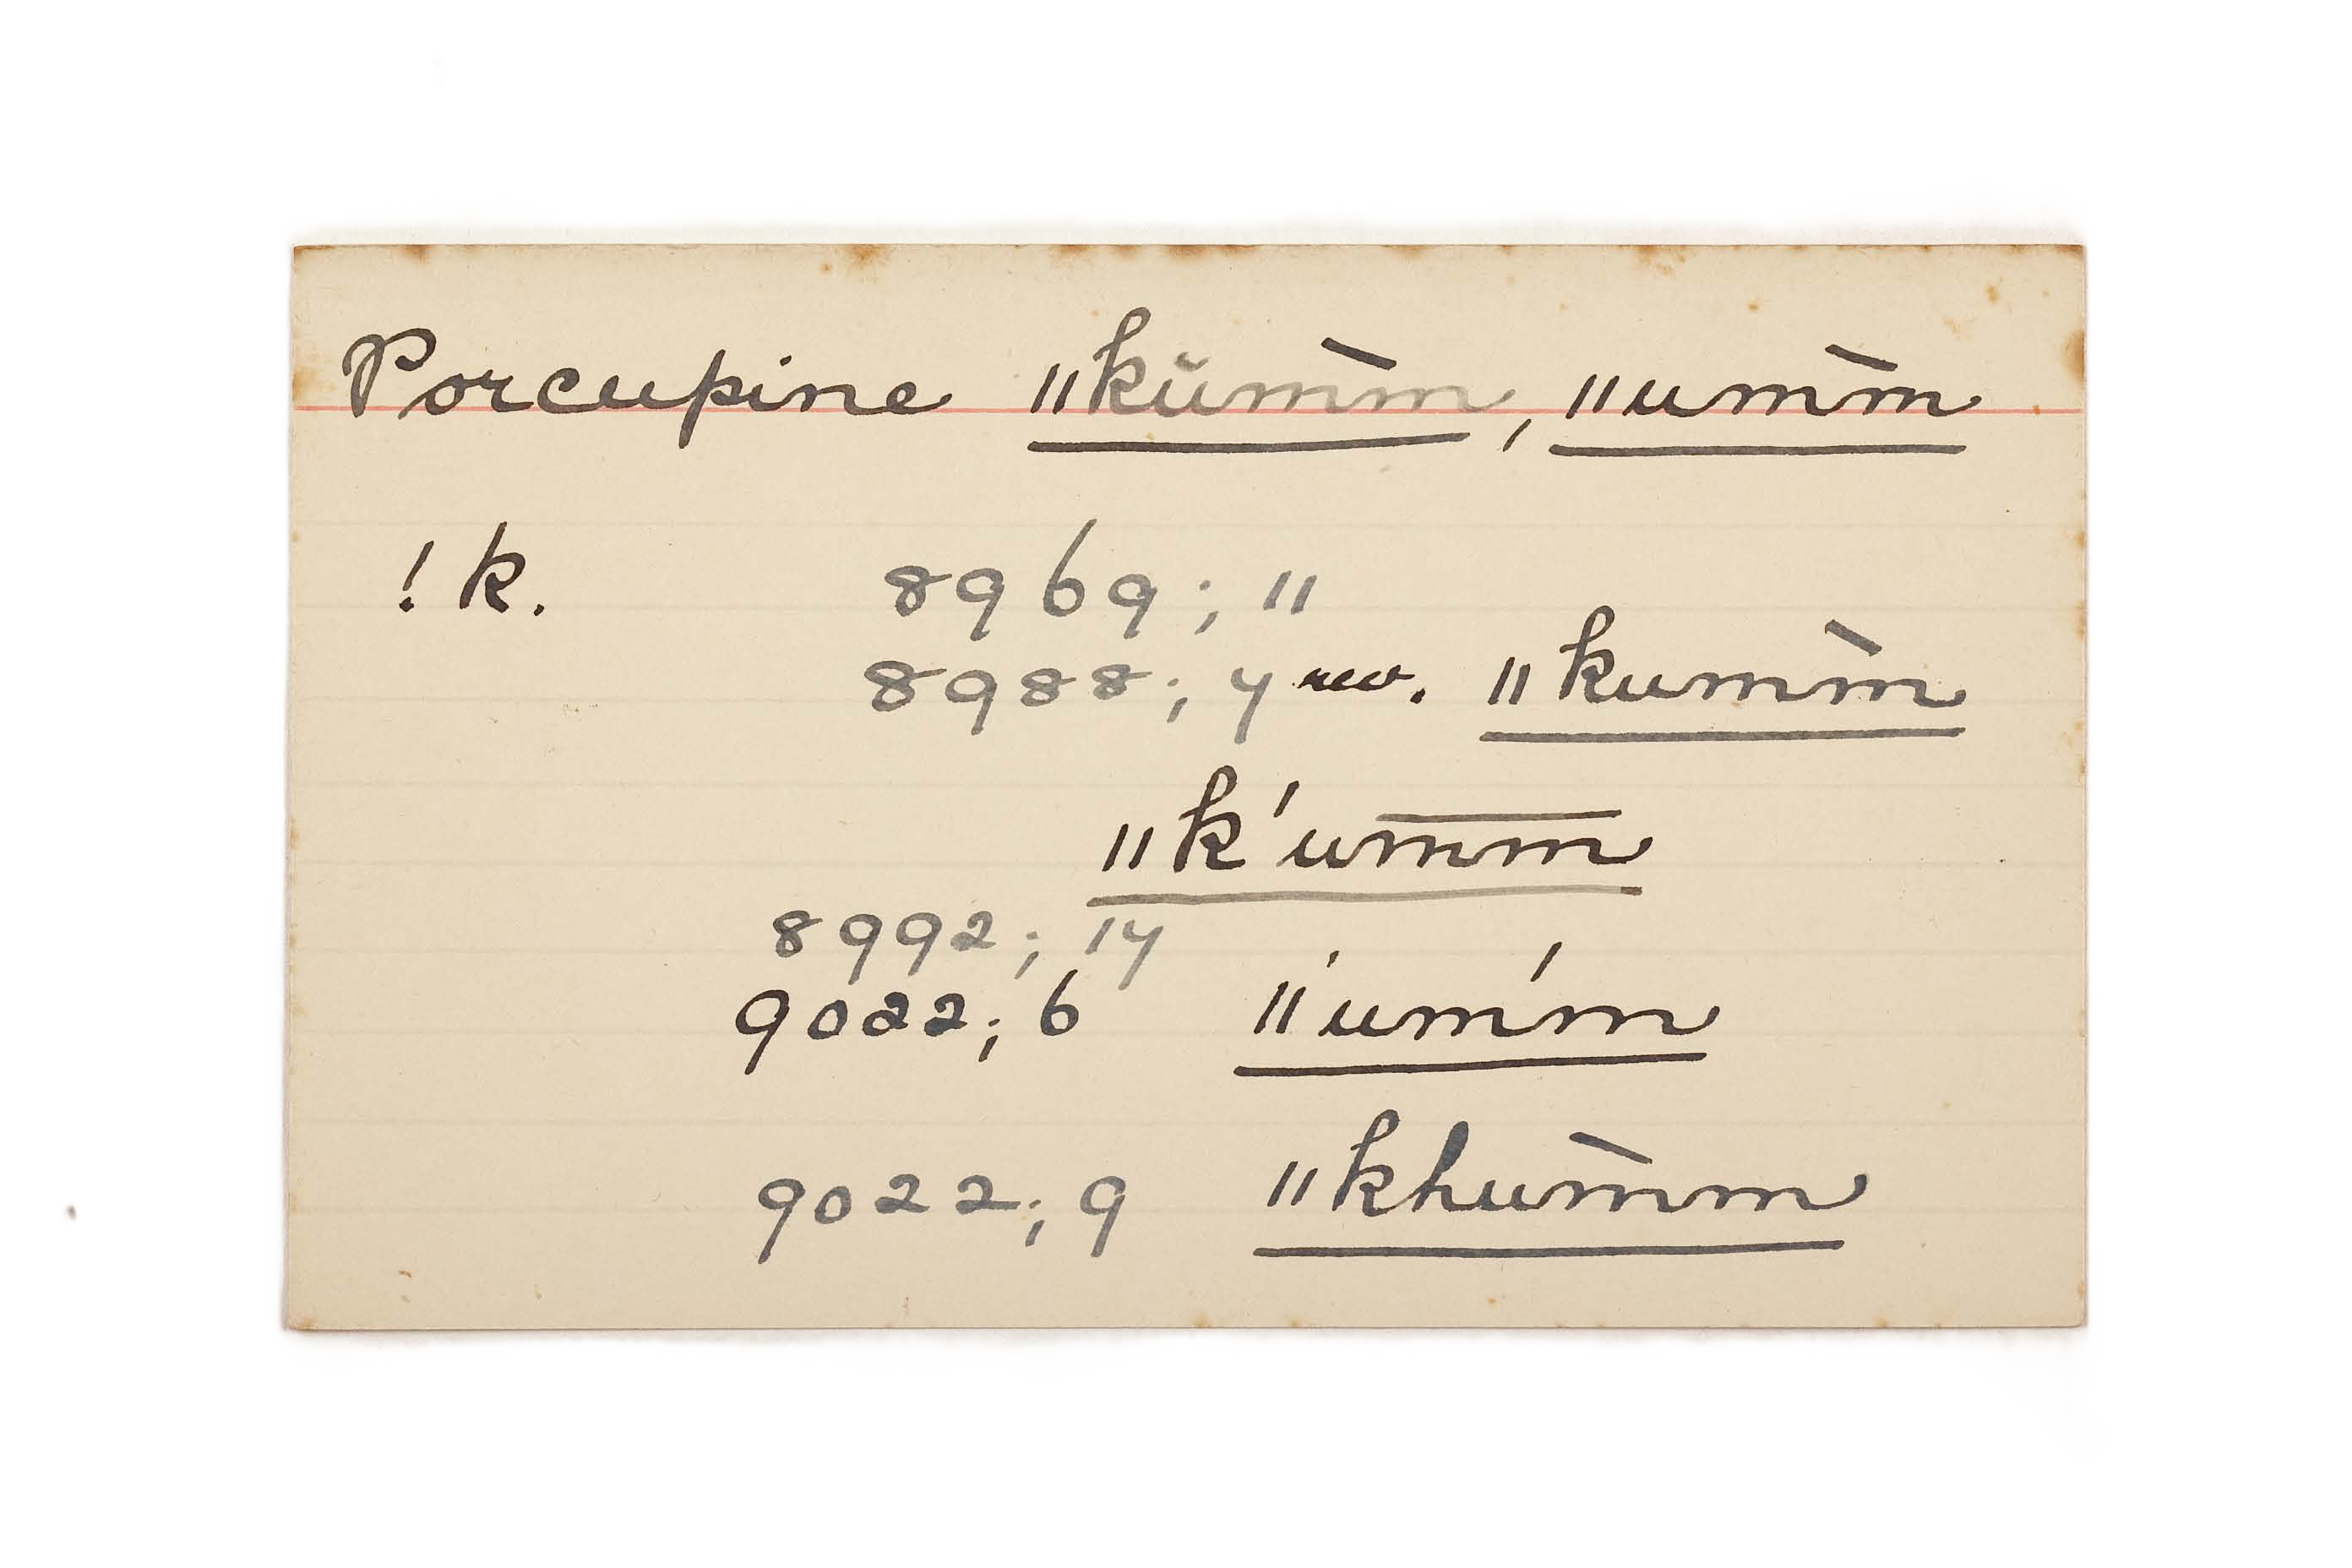 Porcupine ǁkŭm̀m, ǁum̀m
! k. 8969; 11
8988; 7 rev. ǁkumm̀
ǁk'um̅m̅
8992; 17
9022; 6 ǁ'uḿm
9022; 9 ǁkhum̀m